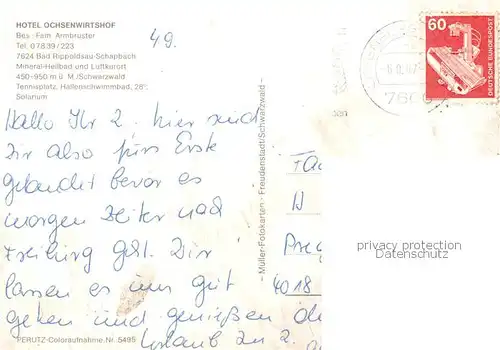 HOTEL OCHSENWIRTSHOF
Bes.: Fam. Armbruster
Tel. 07839/223
7624 Bad Rippoldsau-Schapbach
Mineral-Heilbad und Luftkurort
450-950 m ü. M./Schwarzwald
Tennisplatz, Hallenschwimmbad, 28°,
Solarium
49.
60
DEUTSCHE BUNDESPOST
7600
Hallo Ihr 2. hier sind
wir also fürs Erste
gelandet bevor es
morgen weiter nach
Freiburg geht. Wir
lassen es uns gut
gehen und genießen den
Urlaub zu 2.
4018
privacy protection
Datenschutz
- Müller-Fotokarten - Freudenstadt/Schwarzwald -
PERUTZ-Coloraufnahme, Nr. 5495